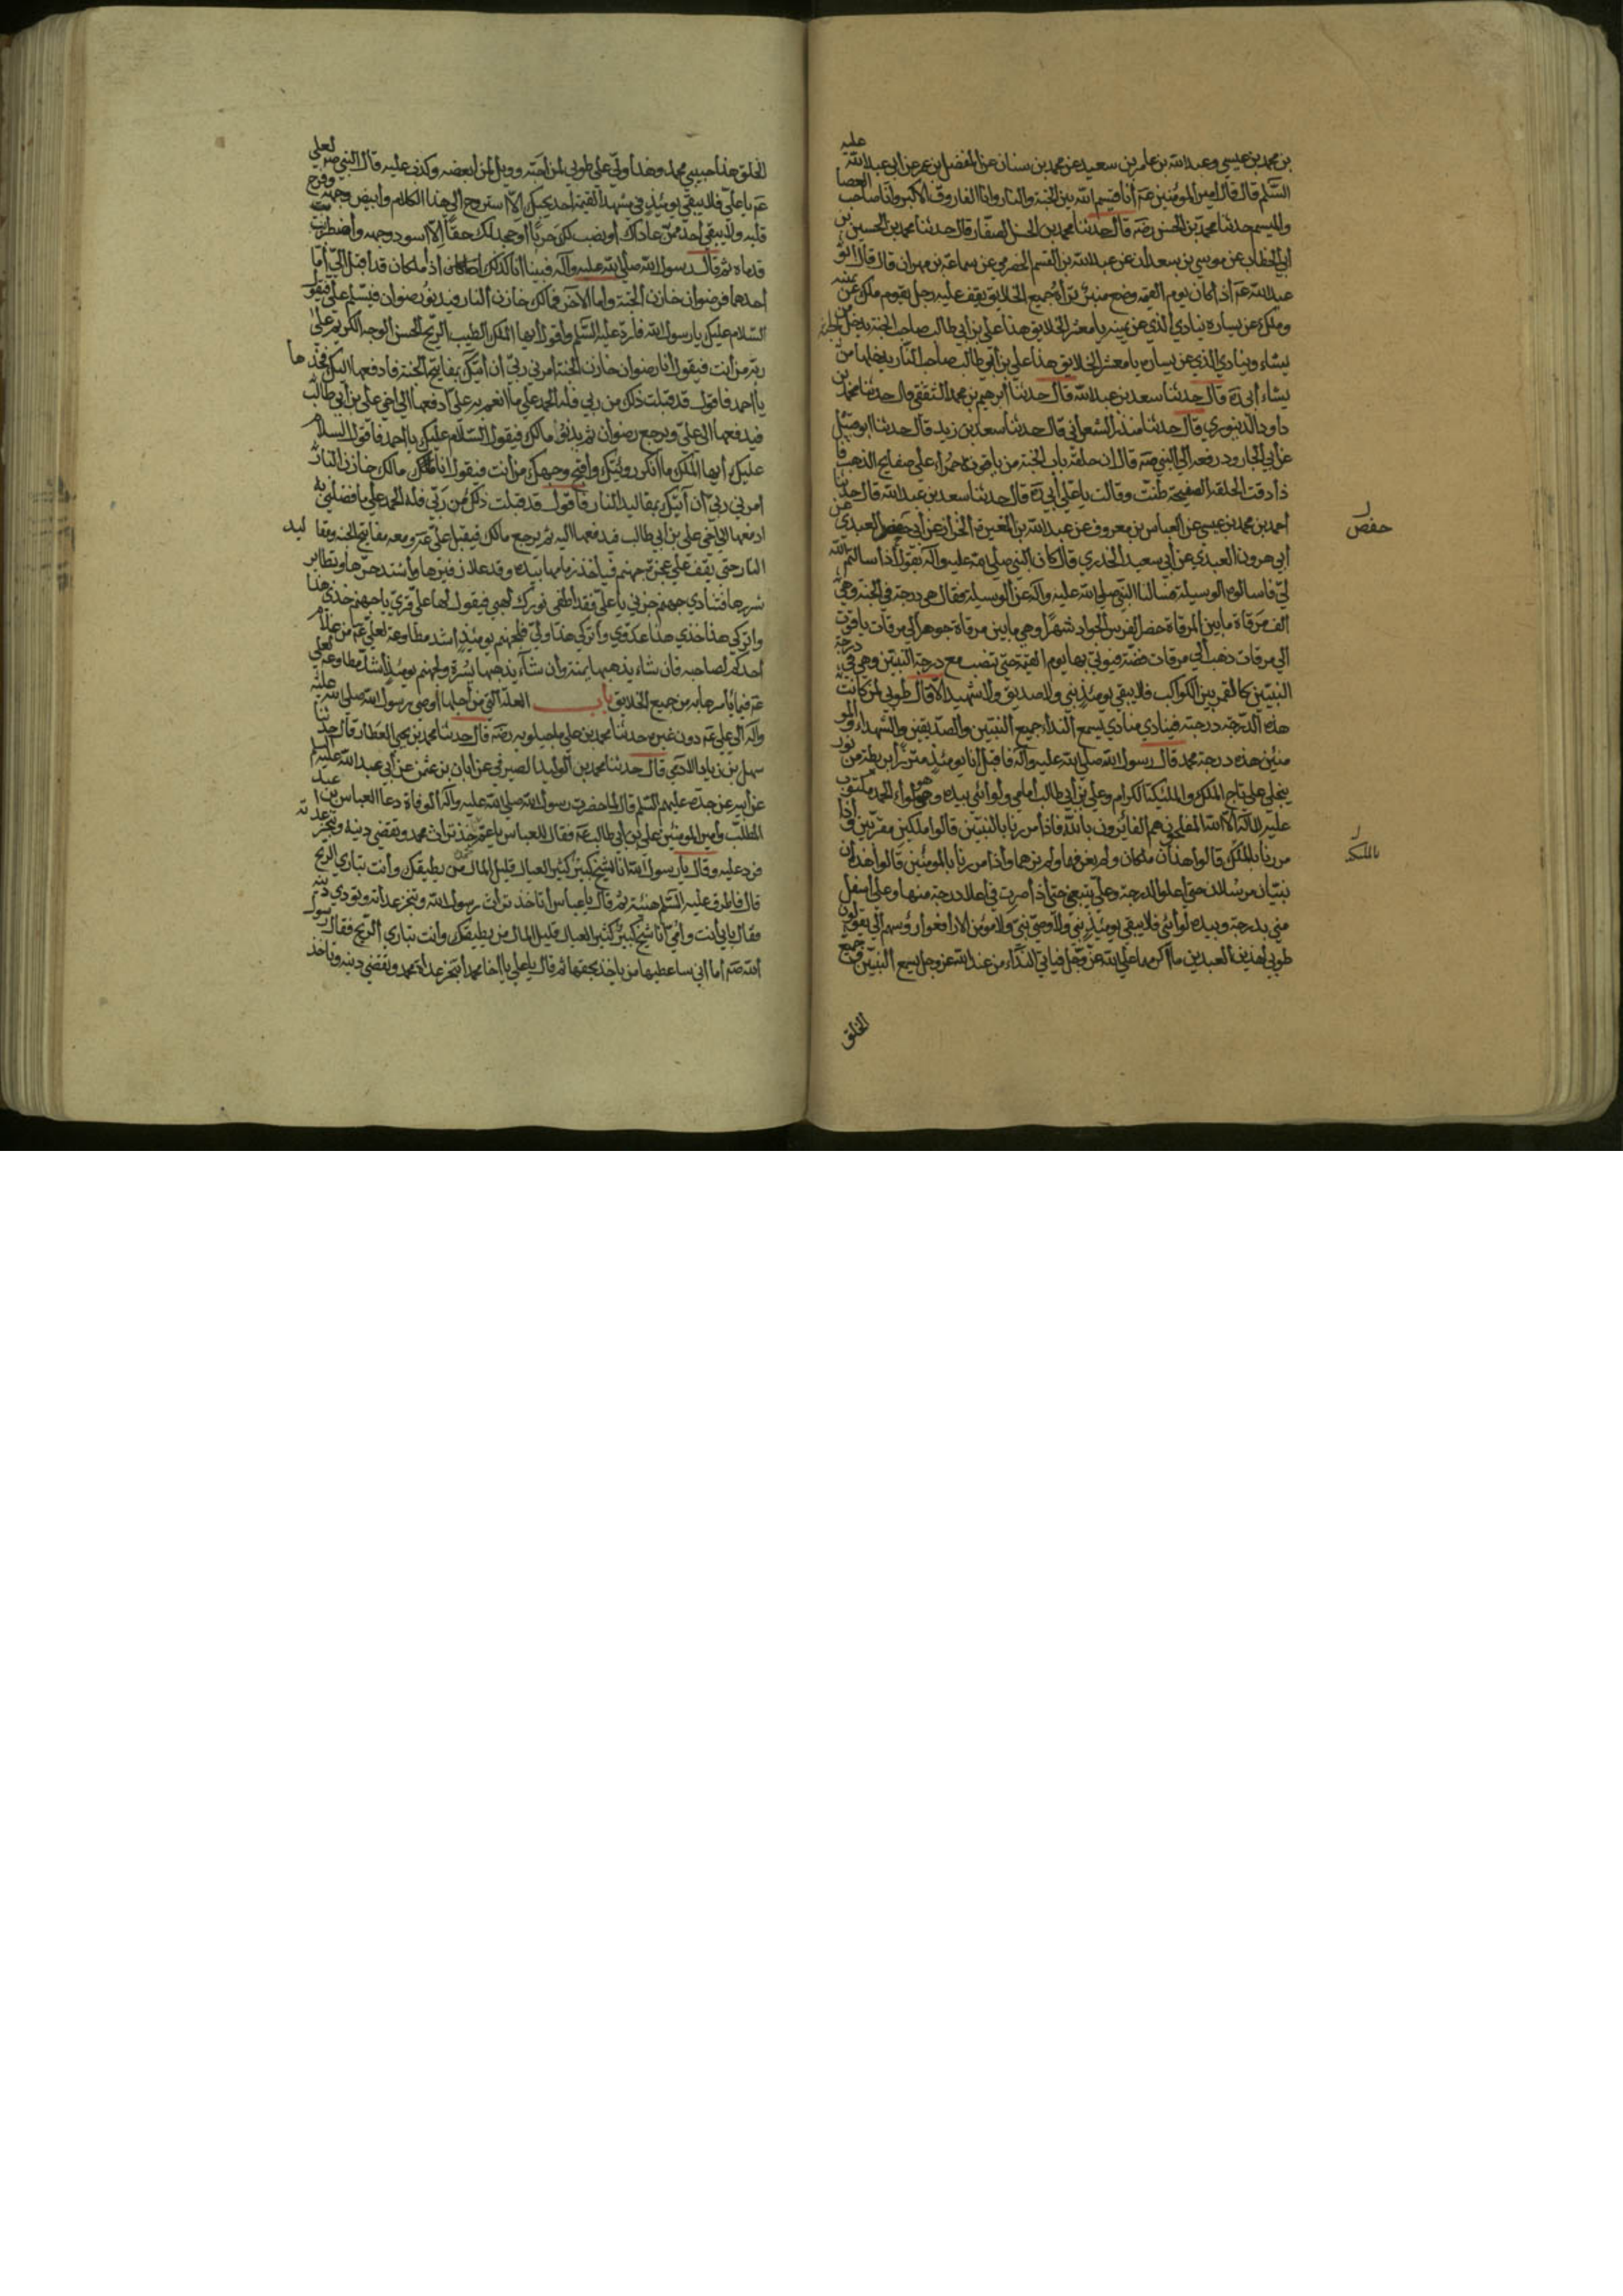 بن محمد بن عيسى وعبد الله بن عامر بن سعيد عن محمد بن سنان عن المفضل بن عمر عن أبي عبد الله عليه
السلم قال قال أمير المؤمنين عم أنا قسيم الله بين الجنة والنار وأنا الفاروق الأكبر وأنا صاحب العصا
والميسم حدثنا محمد بن الحسن رضه قال حدثنا محمد بن الحسن الصفار قال حدثنا محمد بن الحسين بن
أبي الخطاب عن موسى بن سعدان عن عبد الله بن القسم الحضرمي عن سماعة بن مهران قال قال أبو
عبد الله عم إذا كان يوم القيمة وضع منبر يراه جميع الخلايق يقف عليه رجل يقوم ملك عن يمينه
وملك عن يساره ينادي الذي عن يمينه يا معشر الخلايق هذا علي بن أبي طالب صاحب الجنة يدخل الجنة من
يشاء وينادي الذي عن يساره يا معشر الخلايق هذا علي بن أبي طالب صاحب النار يدخلها من
يشاء أبي ره قال حدثنا سعد بن عبد الله قال حدثنا إبرهيم بن محمد الثقفي قال حدثنا محمد بن
داود الدينوري قال حدثنا منذر الشعراني قال حدثنا سعد بن زيد قال حدثنا أبو
عن أبي الجارود رفعه إلى النبي صه قال إن حلقة باب الجنة من ياقوتة حمراء على صفايح الذهب فا
ذا دقت الحلقة الصفيحة طنت وقالت يا علي أبي ره قال حدثنا سعد بن عبد الله قال حدثنا
أحمد بن محمد بن عيسى عن العباس بن معروف عن عبد الله بن المغيرة الخزاز عن أبي حفص العبدي عن
حفص
أبي هرون العبدي عن أبي سعيد الخدري قال كان النبي صلى الله عليه وآله يقول إذا سألتم الله
لي فاسألوه الوسيلة فسألنا النبي صلى الله عليه وآله عن الوسيلة فقال هي درجتي في الجنة وهي
ألف مرقاة ما بين المرقاة حضر الفرس الجواد شهرا وهي ما بين مرقاة جوهر إلى مرقات ياقوت
إلى مرقات ذهب إلى مرقات فضة فيؤتى بها يوم القيمة حتى تنصب مع درجة النبيين وهي في درجة
النبيين كالقمر بين الكواكب فلا يبقى يومئذ نبي ولا صديق ولا شهيد إلا قال طوبى لمن كانت
هذه الدرجة درجته فينادي منادي يسمع النداء جميع النبيين والصديقين والشهداء والمؤ
منين هذه درجة محمد قال رسول الله صلى الله عليه وآله فأقبل أنا يومئذ متزرا بريطة من نور
علي تاج الملك والمليكة الكرام وعلي بن أبي طالب أمامي ولوائي بيده وهو لواء الحمد مكتوب
عليه لا إله إلا الله المفلحون هم الفائزون بالله فإذا مررنا بالنبيين قالوا ملكين مقربين وإذا
مررنا بالملئكة قالوا هذان ملكان ولم نعرفهما ولم نرهما وإذا مررنا بالمؤمنين قالوا هذان
بالملئكة
نبيان مرسلان حتى أعلو الدرجة وعلي يتبعني حتى إذا صرت في أعلا درجة منها وعلي أسفل
مني بدرجة وبيده لوائي فلا يبقى يومئذ نبي ولا وصي نبي ولا مؤمن إلا رفعوا رؤسهم إلي يقولون
طوبى لهذين العبدين ما أكرمهما على الله عز وجل فيأتي النداء من عند الله عز وجل يسمع النبيين وجميع
الخلق
الخلق هذا حبيبي محمد وهذا وليي علي طوبى لمن أحبه وويل لمن أبغضه وكذب عليه قال النبي صه لعلي
عم يا علي فلا يبقى يومئذ في مشهد القيمة أحد يحبك إلا استروح إلى هذا الكلام وابيض وجهه وفرح
قلبه ولا يبقى أحد ممن عاداك أو نصب لك حربا أو جحد لك حقا إلا اسود وجهه واضطربت
قدماه ثم قال رسول الله صلى الله عليه وآله فبينا أنا كذلك إذ ملكان قد أقبلا إلي أما
أحدهما فرضوان خازن الجنة وأما الآخر فمالك خازن النار فيدنو رضوان فيسلم علي فيقو
السلام عليك يا رسول الله فأرد عليه السلم وأقول أيها الملك الطيب الريح الحسن الوجه الكريم على
ربه من أنت فيقول أنا رضوان خازن الجنة أمرني ربي أن آتيك بمفاتيح الجنة فأدفعها إليك فخذها
يا أحمد فأقول قد قبلت ذلك من ربي فله الحمد على ما أنعم به علي أدفعها إلى أخي علي بن أبي طالب
فيدفعها إلى علي ويرجع رضوان ثم يدنو مالك فيقول السلام عليك يا أحمد فأقول السلام
عليك أيها الملك ما أنكر رؤيتك وأقبح وجهك من أنت فيقول أنا مالك خازن النار
أمرني ربي أن آتيك بمقاليد النار فأقول قد قبلت ذلك من ربي فله الحمد على ما فضلني به
ادفعها إلى أخي علي بن أبي طالب فيدفعها إليه ثم يرجع مالك فيقبل علي عم ومعه مفاتيح الجنة ومقاليد
النار حتى يقف على عجزة جهنم فيأخذ زمامها بيده وقد علا زفيرها واشتد حرها وتطاير
شررها فتنادي جهنم جزني يا علي فقد أطفى نورك لهبي فيقول لها علي قري يا جهنم خذي هذا
واتركي هذا خذي هذا عدوي واتركي هذا وليي فلجهنم يومئذ أشد مطاوعة لعلي عم من غلام
أحدكم لصاحبه فإن شاء يذهبها يمنة وإن شاء يذهبها يسرة ولجهنم يومئذ أشد مطاوعة لعلي
عم فيما يأمرها به من جميع الخلايق باب العلة التي من أجلها أوصى رسول الله صلى الله عليه
وآله إلى علي عم دون غيره حدثنا محمد بن علي ماجيلويه رضه قال حدثنا محمد بن يحيى العطار قال حدثنا
سهل بن زياد الآدمي قال حدثنا محمد بن الوليد الصيرفي عن أبان بن عثمن عن أبي عبد الله عليه السلم
عن أبيه عن جده عليهم السلم قال لما حضرت رسول الله صلى الله عليه وآله الوفاة دعا العباس بن عبد
المطلب وأمير المؤمنين علي بن أبي طالب عم فقال للعباس يا عم محمد تأخذ تراث محمد وتقضي دينه وتنجز عداته
فرد عليه وقال يا رسول الله أنا شيخ كبير كثير العيال قليل المال من يطيقك وأنت تباري الريح
قال فأطرق عليه السلم هنيئة ثم قال يا عباس أتأخذ تراث رسول الله وتنجز عداته وتودي دينه
فقال بأبي أنت وأمي أنا شيخ كبير كثير العيال قليل المال من يطيقك وأنت تباري الريح فقال رسول
الله صه أما أني سأعطيها من يأخذ بحقها ثم قال يا علي يا أخا محمد أتنجز عداة محمد وتقضي دينه وتأخذ